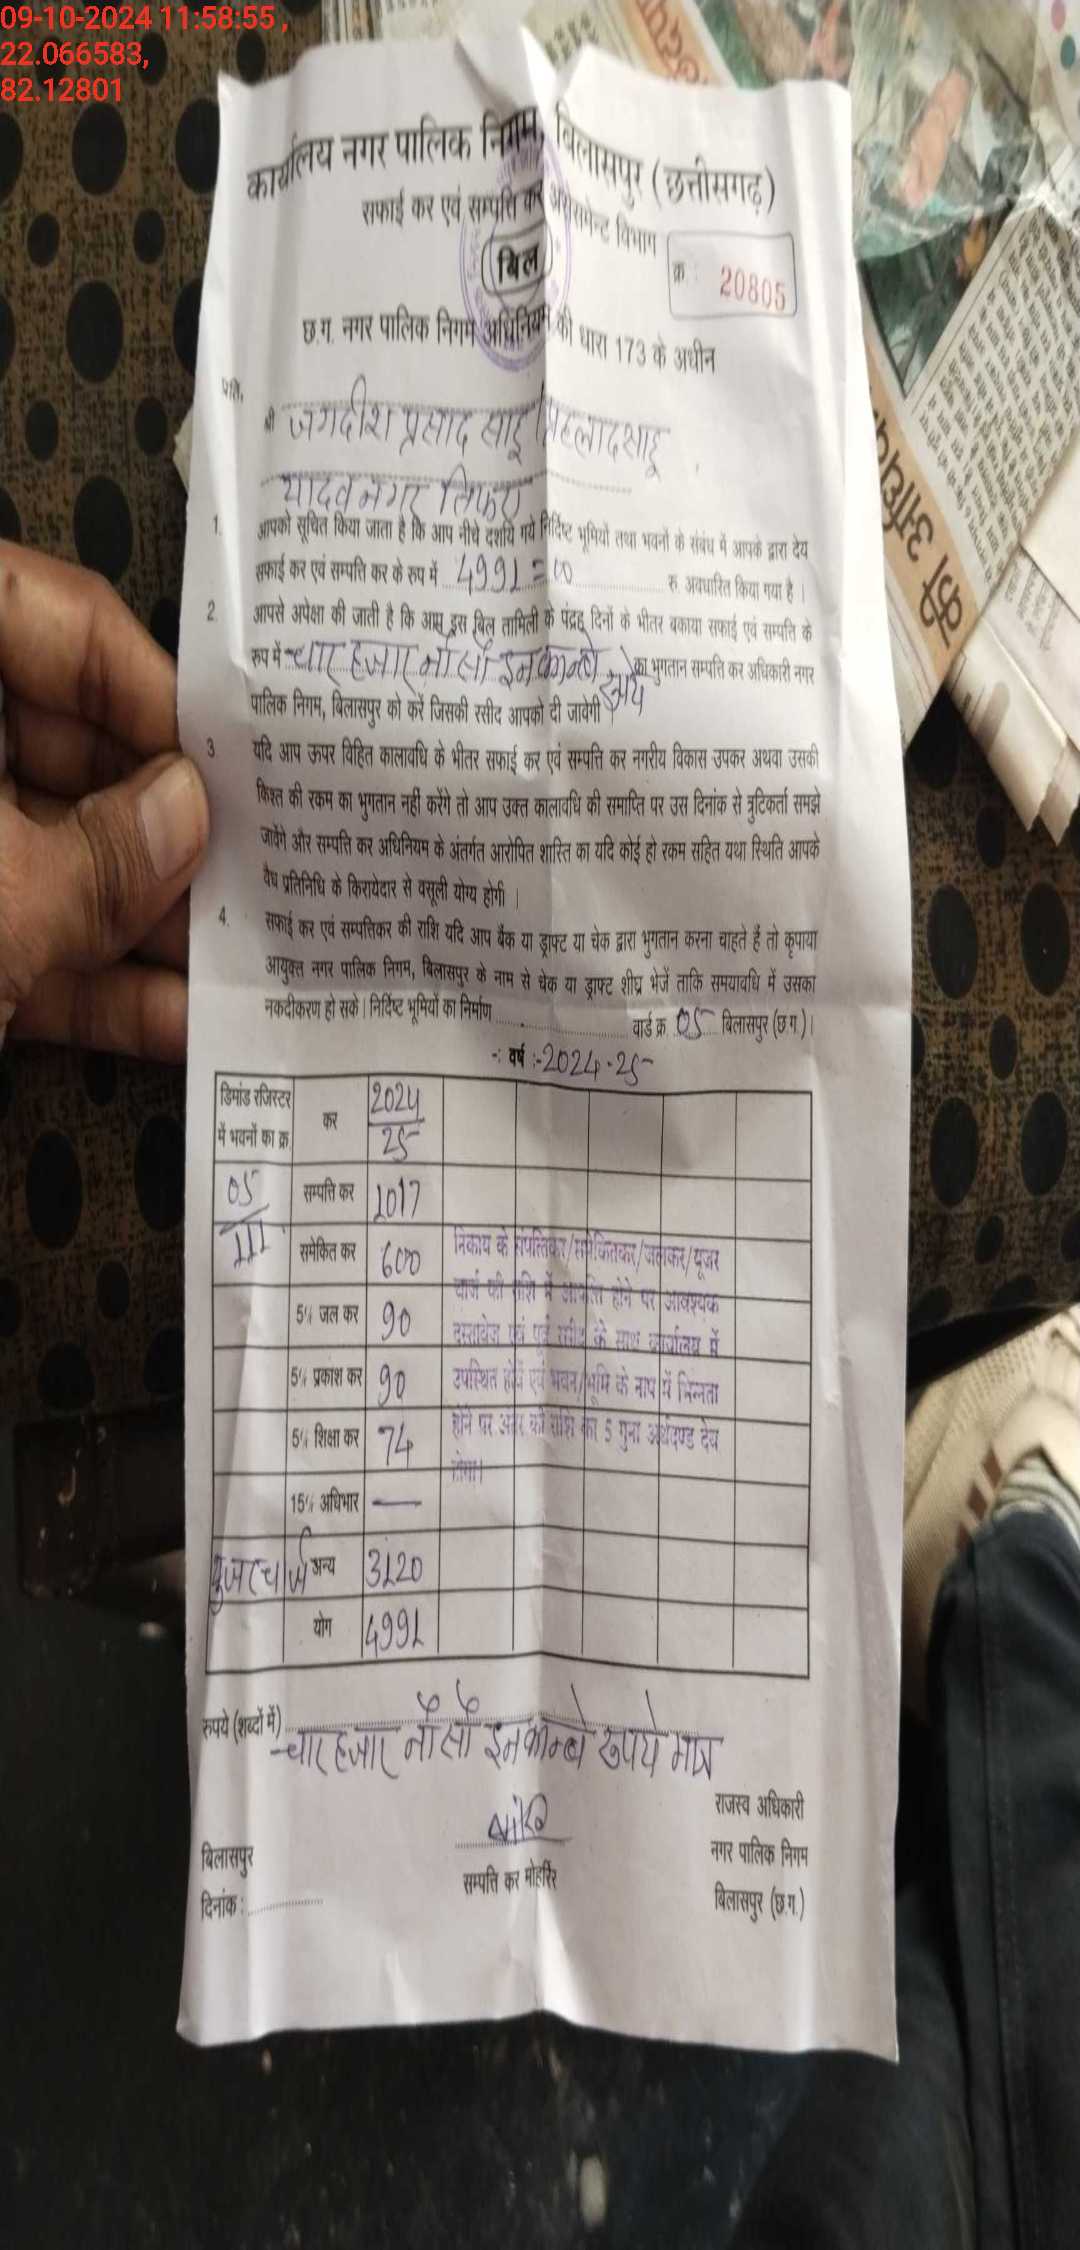 09-10-2024 11:58:55 ,
22.066583,
82.12801
कार्यालय नगर पालिक निगम, बिलासपुर (छत्तीसगढ़)
सफाई कर एवं सम्पत्ति कर असेसमेन्ट विभाग
(बिल)
क्र. : 20805
छ.ग. नगर पालिक निगम अधिनियम की धारा 173 के अधीन
प्रति,
श्री जगदीश प्रसाद साहू / प्रहलाद साहू
यादव नगर तिफरा
1. आपको सूचित किया जाता है कि आप नीचे दर्शाये गये निर्दिष्ट भूमियों तथा भवनों के संबंध में आपके द्वारा देय
सफाई कर एवं सम्पत्ति कर के रूप में 4991=00 रु. अवधारित किया गया है ।
2. आपसे अपेक्षा की जाती है कि आप इस बिल तामिली के पंद्रह दिनों के भीतर बकाया सफाई एवं सम्पति के
रूप में चार हजार नौ सौ इनकान्बे रूपये का भुगतान सम्पति कर अधिकारी नगर
पालिक निगम, बिलासपुर को करें जिसकी रसीद आपको दी जावेगी
3 यदि आप ऊपर विहित कालावधि के भीतर सफाई कर एवं सम्पत्ति कर नगरीय विकास उपकर अथवा उसकी
किश्त की रकम का भुगतान नहीं करेंगे तो आप उक्त कालावधि की समाप्ति पर उस दिनांक से त्रुटिकर्ता समझे
जावेंगे और सम्पति कर अधिनियम के अंतर्गत आरोपित शास्ति का यदि कोई हो रकम सहित यथा स्थिति आपके
वैध प्रतिनिधि के किरायेदार से वसूली योग्य होगी ।
4. सफाई कर एवं सम्पत्तिकर की राशि यदि आप बैंक या ड्राफ्ट या चेक द्वारा भुगतान करना चाहते हैं तो कृपाया
आयुक्त नगर पालिक निगम, बिलासपुर के नाम से चेक या ड्राफ्ट शीघ्र भेजें ताकि समयावधि में उसका
नकदीकरण हो सके। निर्दिष्ट भूमियों का निर्माण वार्ड क्र. 05 बिलासपुर (छ.ग.)।
-: वर्ष :- 2024-25
डिमांड रजिस्टर में भवनों का क्र. कर 2024/25
05/111 सम्पत्ति कर 1017
समेकित कर 600
5% जल कर 90
5% प्रकाश कर 90
5% शिक्षा कर 74
15% अधिभार —
युजर चार्ज अन्य 3120
योग 4991
निकाय के संपत्तिकर/समेकितकर/जलकर/यूजर
चार्ज की राशि में आपत्ति होने पर आवश्यक
दस्तावेज एवं पूर्व रसीद के साथ कार्यालय में
उपस्थित होवें एवं भवन/भूमि के नाप में भिन्नता
होने पर अंतर की राशि का 5 गुना अर्थदण्ड देय
होगा।
रुपये (शब्दों में) चार हजार नौ सौ इनकान्बे रूपये मात्र
राजस्व अधिकारी
नगर पालिक निगम
बिलासपुर (छ.ग.)
सम्पत्ति कर मोहर्रिर
बिलासपुर
दिनांक :